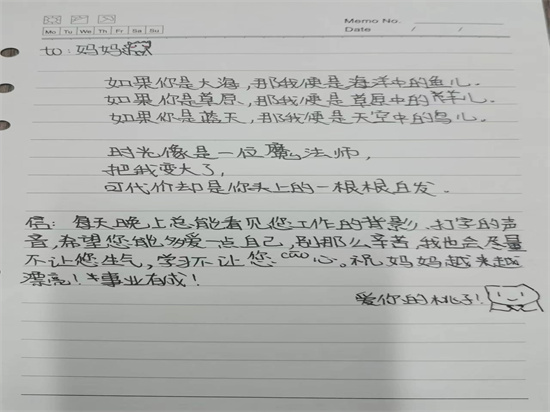 Memo No.
Mo Tu We Th Fr Sa Su
Date / /
to:妈妈
如果你是大海,那我便是海洋中的鱼儿。
如果你是草原,那我便是草原中的羊儿。
如果你是蓝天,那我便是天空中的鸟儿。
时光像是一位魔法师,
把我变大了,
可代价却是你头上的一根根白发。
信:每天晚上总能看见您工作的背影、打字的声
音,希望您能多爱一点自己,别那么辛苦,我也会尽量
不让您生气,学习不让您cāo心。祝妈妈越来越
漂亮!事业有成!
爱你的桃子!